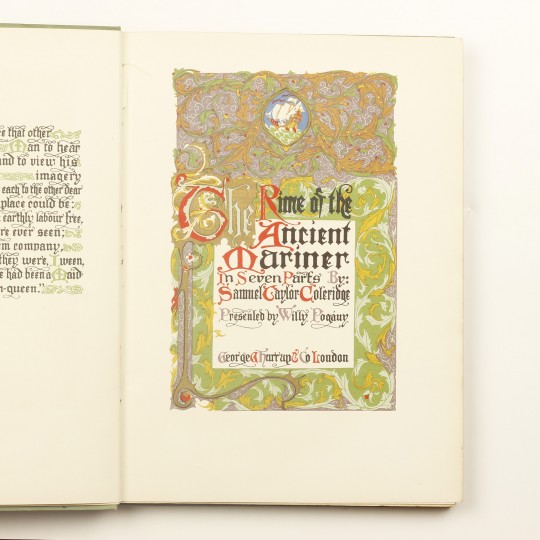 e that other
Man to hear
and to view his
imagery
each to the other dear
place could be;
earthly labour free,
re ever seen;
em company,
they were, I ween,
e had been a Maid
n-queen."
The Rime of the
Ancient
Mariner
In Seven Parts By:
Samuel Taylor Coleridge
Presented by Willy Pogány
George G Harrap & Co London